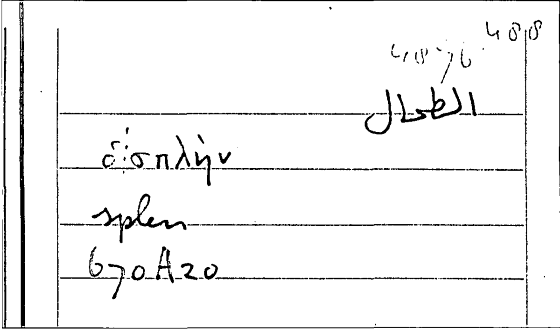 488
4876
الطحال
ὁ σπλὴν
splen
670A20